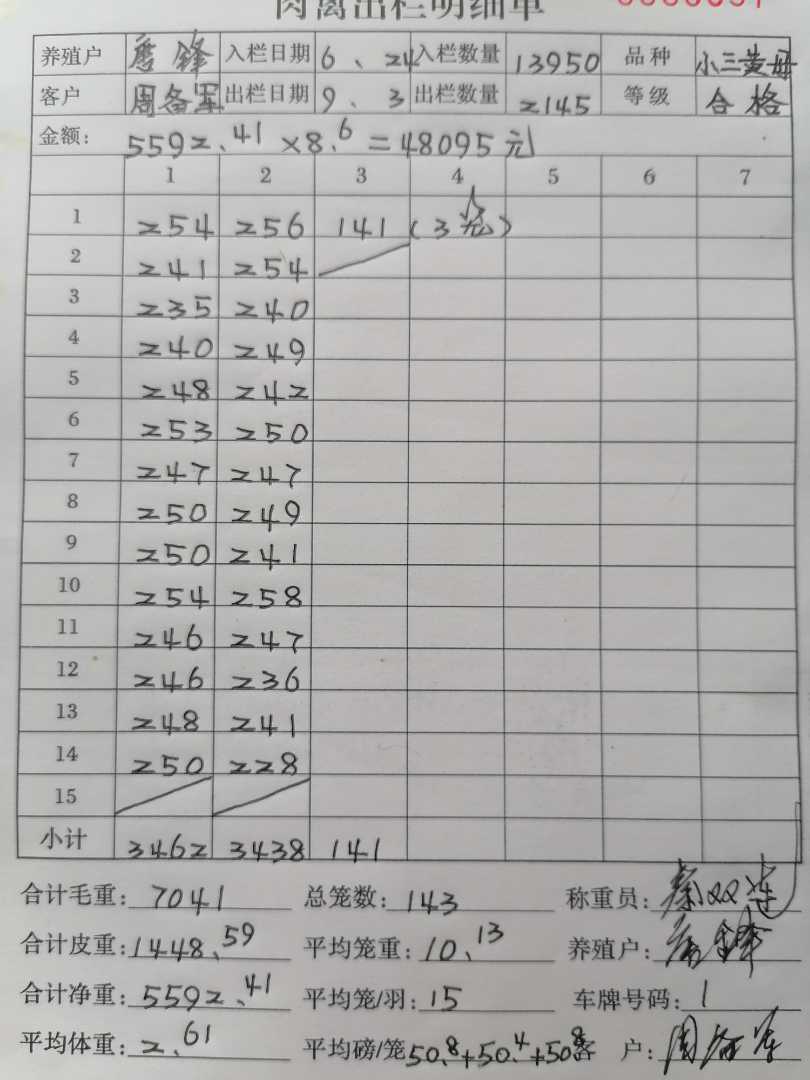 肉禽出栏明细单
养殖户 唐锋 入栏日期 6、24 入栏数量 13950 品种 小三黄母
客户 周备军 出栏日期 9、3 出栏数量 2145 等级 合格
金额: 5592.41×8.6=48095元
1 2 3 4 5 6 7
1 254 256 141 (3笼)
2 241 254
3 235 240
4 240 249
5 248 242
6 253 250
7 247 247
8 250 249
9 250 241
10 254 258
11 246 247
12 246 236
13 248 241
14 250 228
15
小计 3462 3438 141
合计毛重: 7041 总笼数: 143 称重员:
合计皮重: 1448.59 平均笼重: 10.13 养殖户: 唐锋
合计净重: 5592.41 平均笼/羽: 15 车牌号码: 1
平均体重: 2.61 平均磅/笼 50.8+50.4+50.8 客户: 周备军